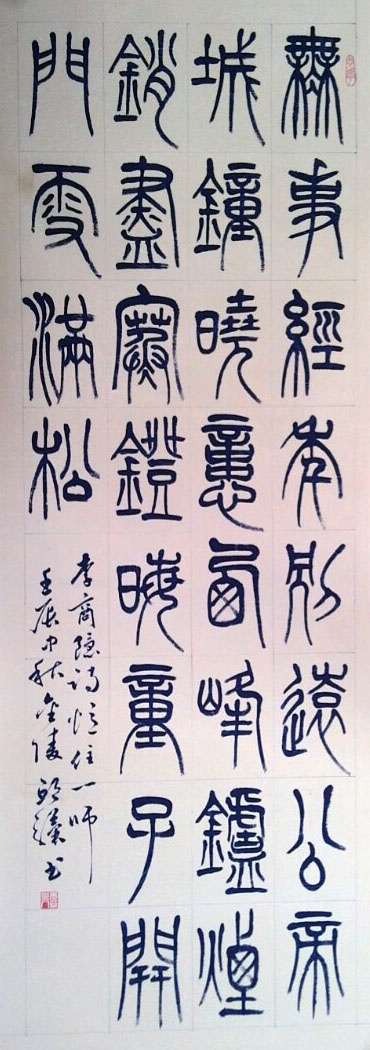 無事經年別遠公帝
城鐘曉憶西峰鑪煙
銷盡寒鐙晦童子開
門雪滿松
李商隐詩忆住一师
壬辰中秋金陵书